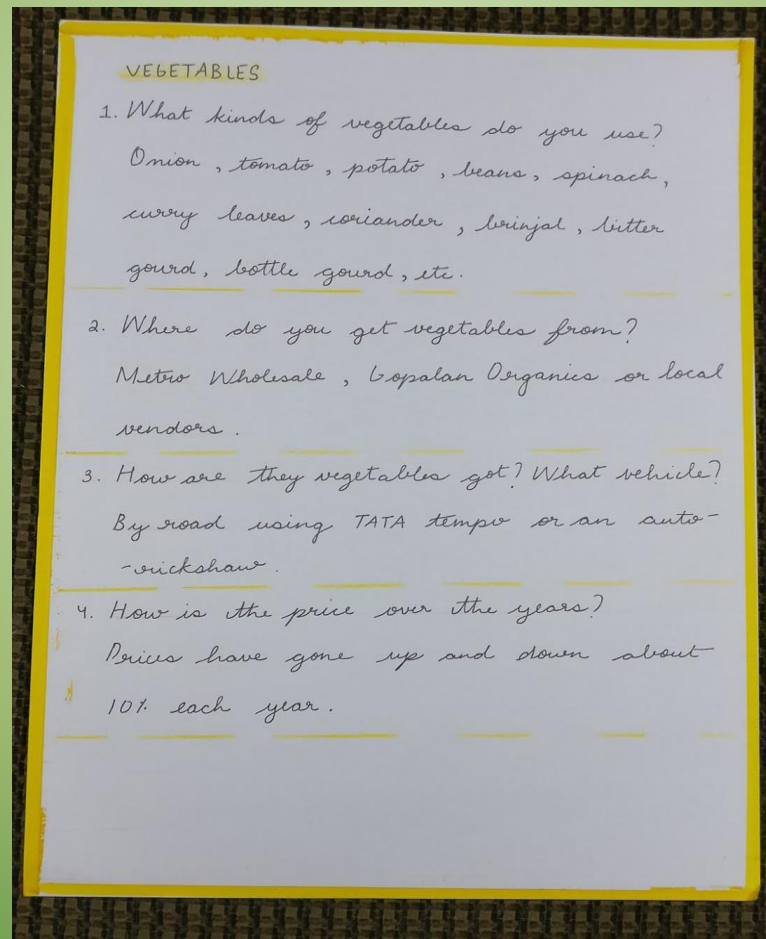 VEGETABLES
1. What kinds of vegetables do you use?
Onion , tomato , potato , beans , spinach ,
curry leaves , coriander , brinjal , bitter
gourd , bottle gourd , etc .
2. Where do you get vegetables from?
Metro Wholesale , Gopalan Organics or local
vendors .
3. How are they vegetables got? What vehicle?
By road using TATA tempo or an auto-
-rickshaw .
4. How is the price over the years?
Prices have gone up and down about
10% each year .